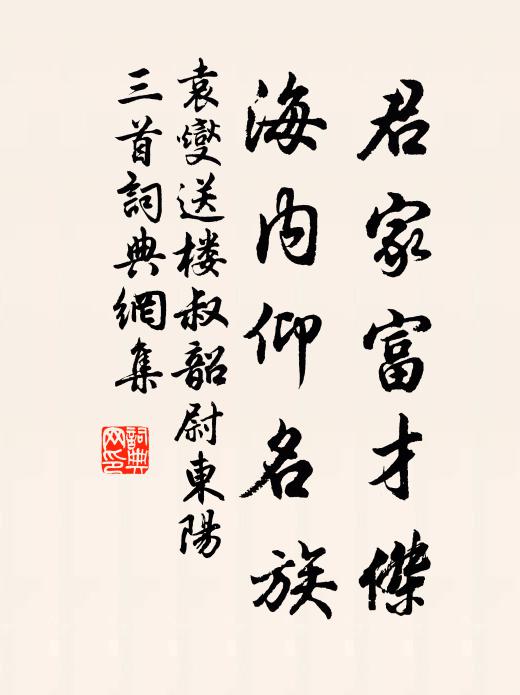 君家富才傑
海内仰名族
袁燮送楼叔韶尉東陽
三首詞典網集
詞典网印